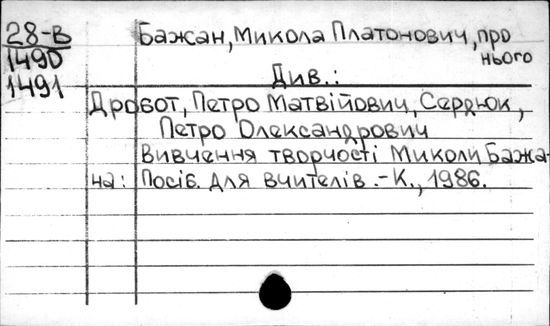 28-В
1490
1491
Бажан, Микола Платонович, про
нього
Див.:
Дробот, Петро Матвійович, Сердюк,
Петро Олександрович
Вивчення творчості Миколи Бажа-
на: Посіб. для вчителів. - К., 1986.